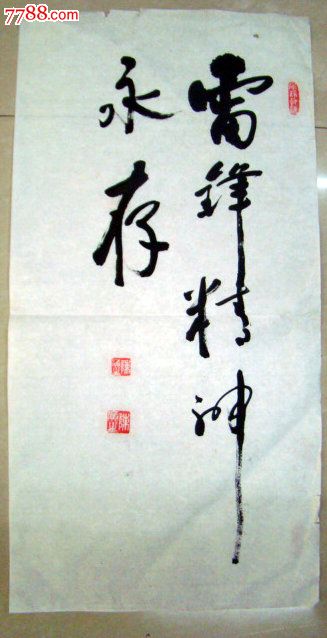 7788.com
雷锋精神
永存